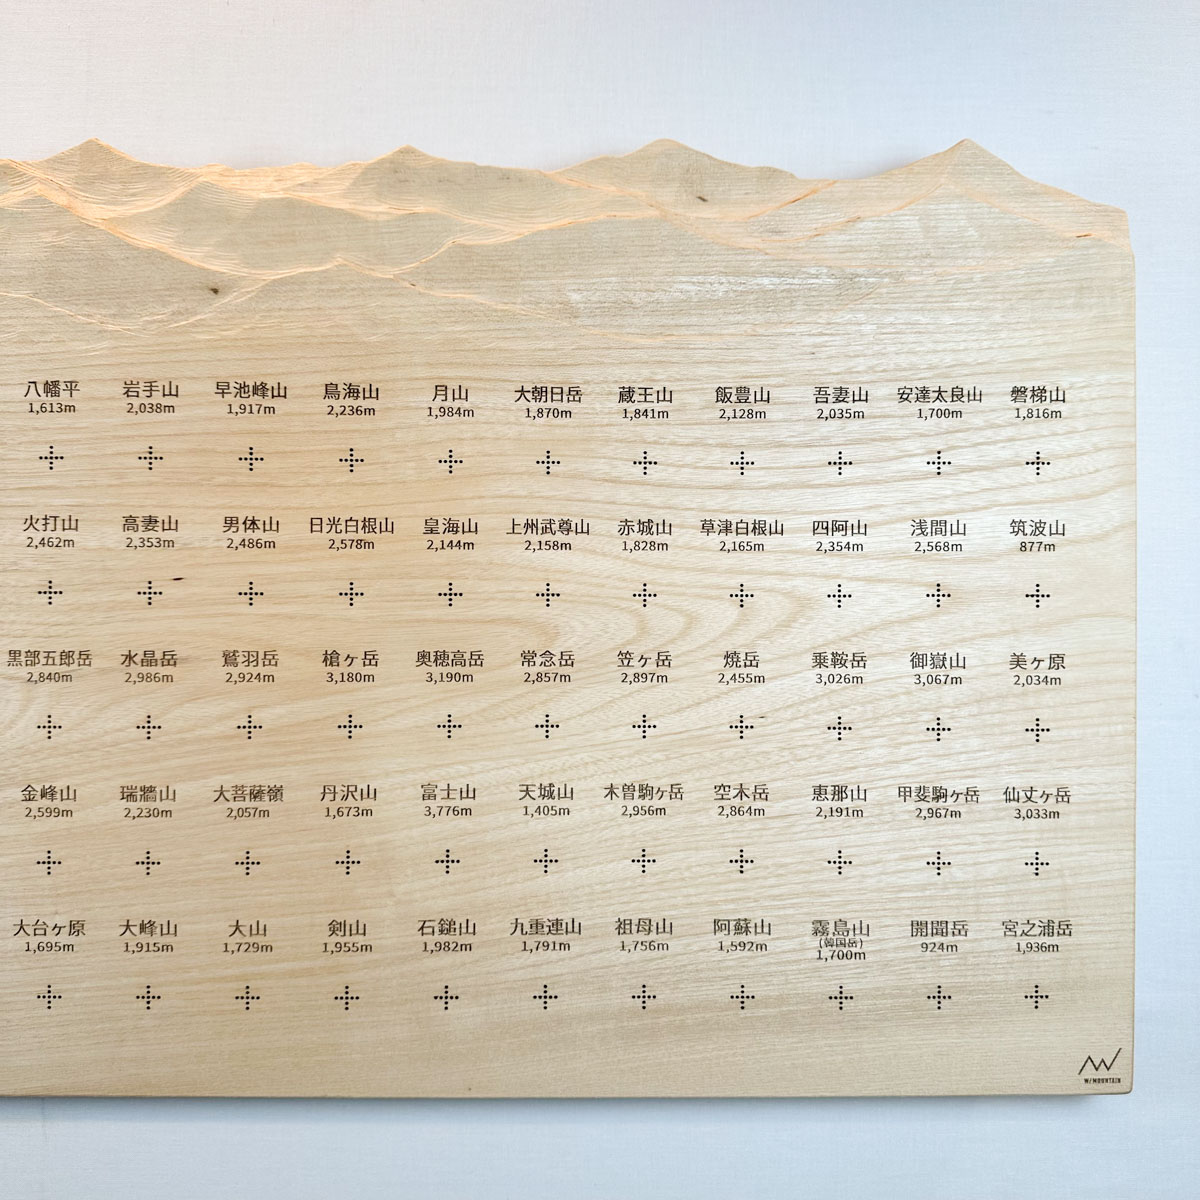 八幡平 岩手山 早池峰山 鳥海山 月山 大朝日岳 蔵王山 飯豊山 吾妻山 安達太良山 磐梯山
1,613m 2,038m 1,917m 2,236m 1,984m 1,870m 1,841m 2,128m 2,035m 1,700m 1,816m
火打山 高妻山 男体山 日光白根山 皇海山 上州武尊山 赤城山 草津白根山 四阿山 浅間山 筑波山
2,462m 2,353m 2,486m 2,578m 2,144m 2,158m 1,828m 2,165m 2,354m 2,568m 877m
黒部五郎岳 水晶岳 鷲羽岳 槍ヶ岳 奥穂高岳 常念岳 笠ヶ岳 焼岳 乗鞍岳 御嶽山 美ヶ原
2,840m 2,986m 2,924m 3,180m 3,190m 2,857m 2,897m 2,455m 3,026m 3,067m 2,034m
金峰山 瑞牆山 大菩薩嶺 丹沢山 富士山 天城山 木曽駒ヶ岳 空木岳 恵那山 甲斐駒ヶ岳 仙丈ヶ岳
2,599m 2,230m 2,057m 1,673m 3,776m 1,405m 2,956m 2,864m 2,191m 2,967m 3,033m
大台ヶ原 大峰山 大山 剣山 石鎚山 九重連山 祖母山 阿蘇山 霧島山 開聞岳 宮之浦岳
(韓国岳)
1,695m 1,915m 1,729m 1,955m 1,982m 1,791m 1,756m 1,592m 1,700m 924m 1,936m
W/MOUNTAIN